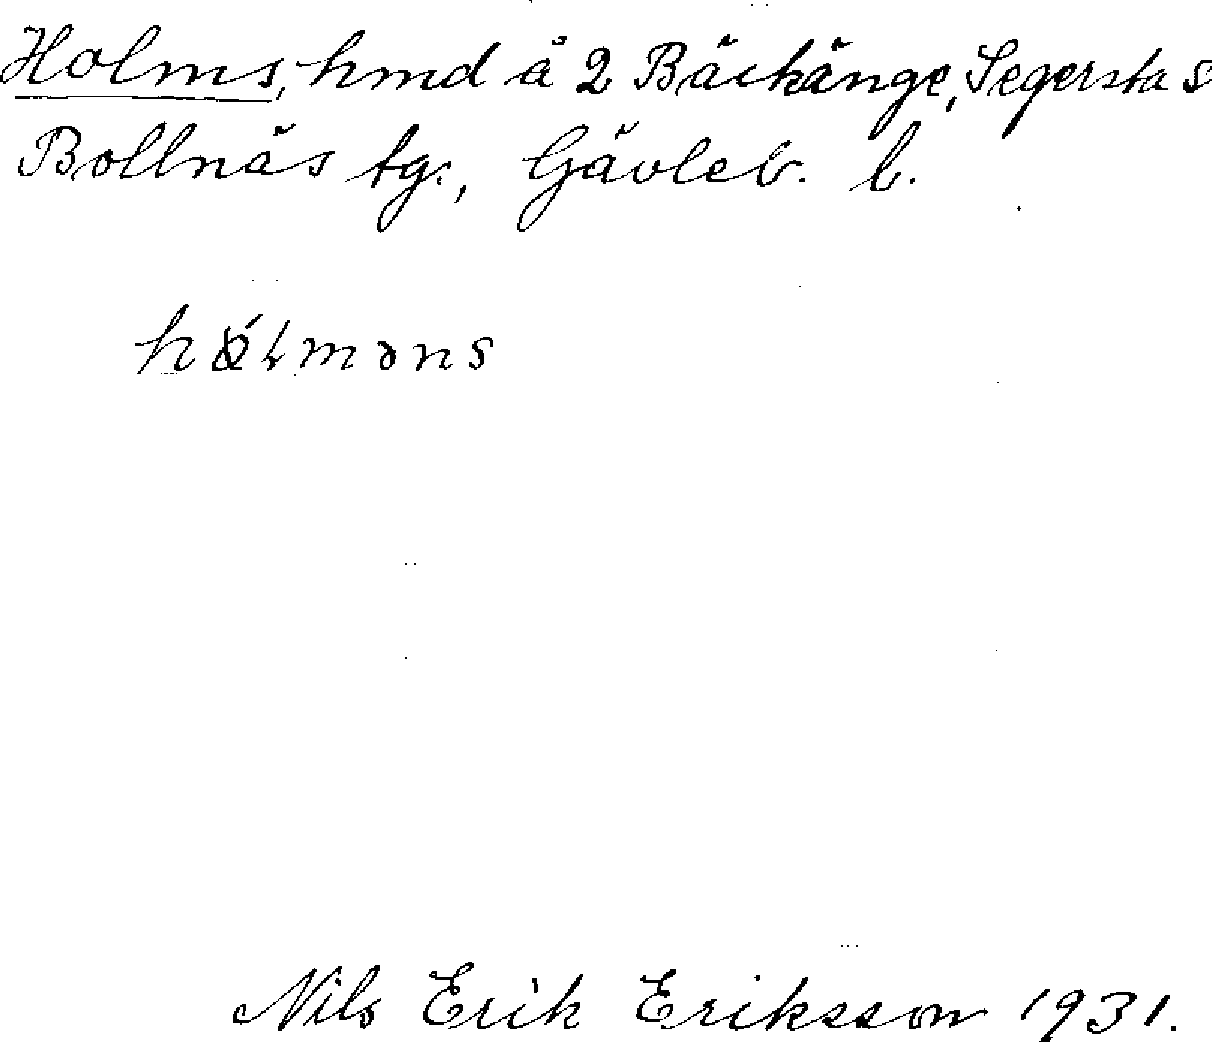 Holms, hmd å 2 Bäckänge, Segersta s
Bollnäs tg., Gävleb. l.
Nils Erik Eriksson 1931.